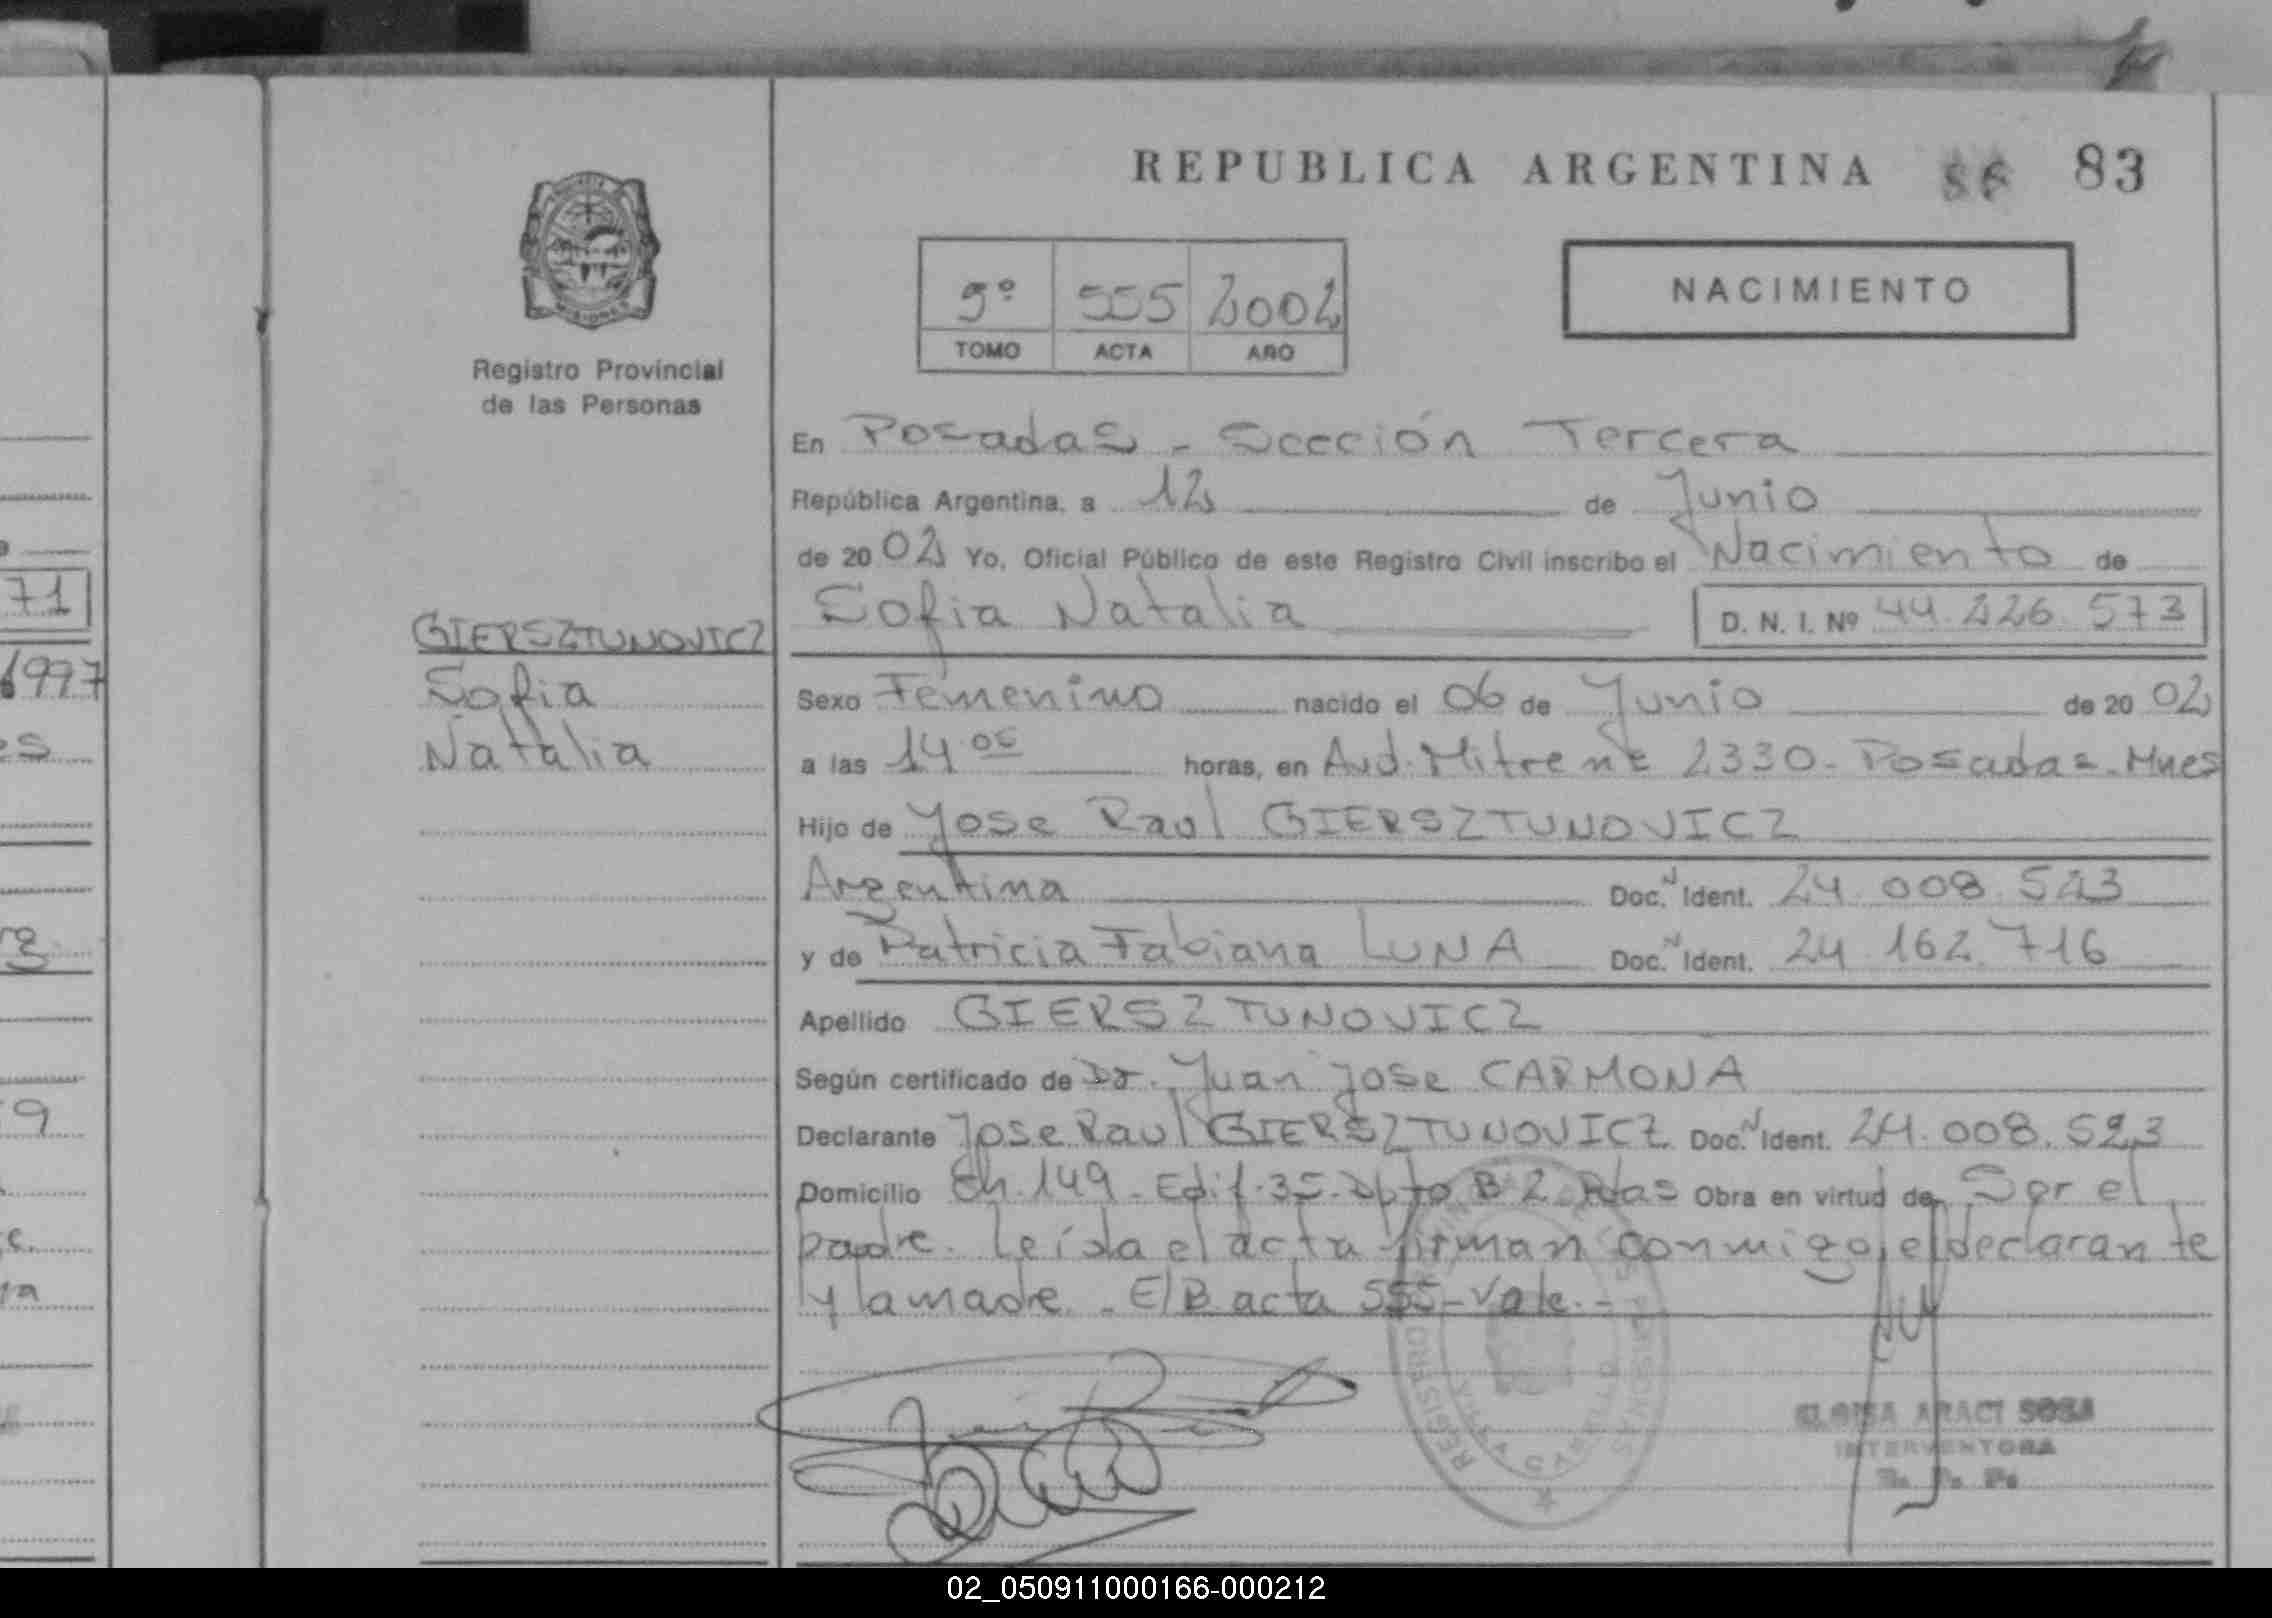 REPUBLICA ARGENTINA 83
NACIMIENTO
5º 555 2002
TOMO ACTA AÑO
Registro Provincial
de las Personas
En Posadas - Sección Tercera
República Argentina, a 12 de Junio
de 2002 Yo, Oficial Público de este Registro Civil inscribo el Nacimiento de
Sofia Natalia D. N. I. Nº 44.226.573
GIERSZTUNOVICZ
Sofia
Natalia
Sexo Femenino nacido el 06 de Junio de 2002
a las 14 05 horas, en Avd. Mitre nº 2330 - Posadas - Mnes
Hijo de Jose Raul GIERSZTUNOVICZ
Argentina Doc. Ident. 24.008.523
y de Patricia Fabiana LUNA Doc. Ident. 24.162.716
Apellido GIERSZTUNOVICZ
Según certificado de Dr. Juan Jose CARMONA
Declarante Jose Raul GIERSZTUNOVICZ Doc. Ident. 24.008.523
Domicilio Ch. 149 - Edif. 35 - Dpto B 2 Pdas Obra en virtud de Ser el
padre. Leída el acta firman conmigo el declarante
y la madre. - E/B acta 555 - Vale. -
ELOISA ARACI SOSA
INTERVENTORA
R. P. P.
71
1997
es
9
02_050911000166-000212